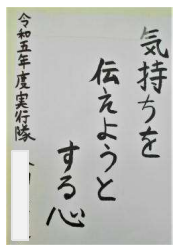 気持ちを
伝えようと
する心
令和五年度実行隊